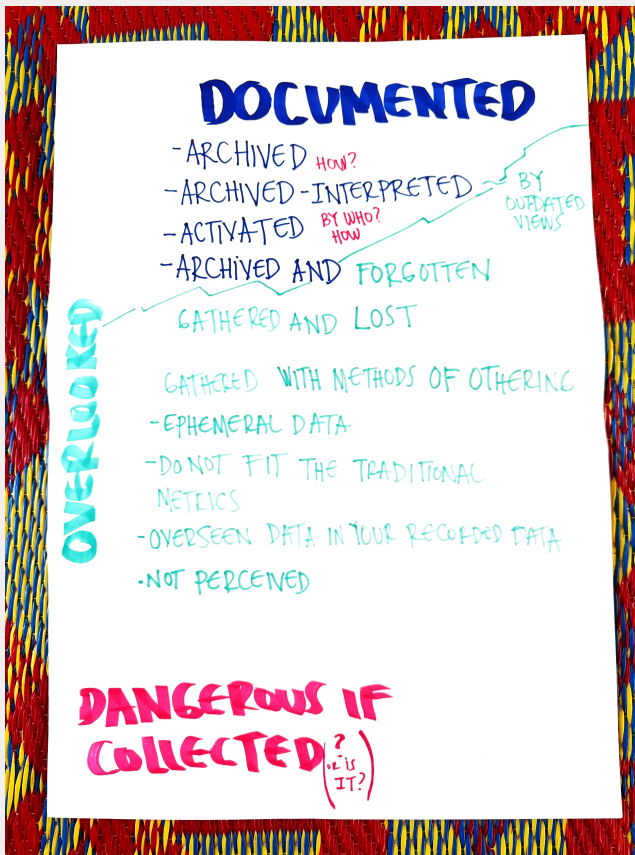 DOCUMENTED
-ARCHIVED HOW?
-ARCHIVED-INTERPRETED
BY
OUTDATED
VIEWS
-ACTIVATED BY WHO?
HOW
-ARCHIVED AND FORGOTTEN
OVERLOOKED
GATHERED AND LOST
GATHERED WITH METHODS OF OTHERING
-EPHEMERAL DATA
-DO NOT FIT THE TRADITIONAL
METRICS
-OVERSEEN DATA IN YOUR RECORDED DATA
-NOT PERCEIVED
DANGEROUS IF
COLLECTED
(?
or is
IT?)